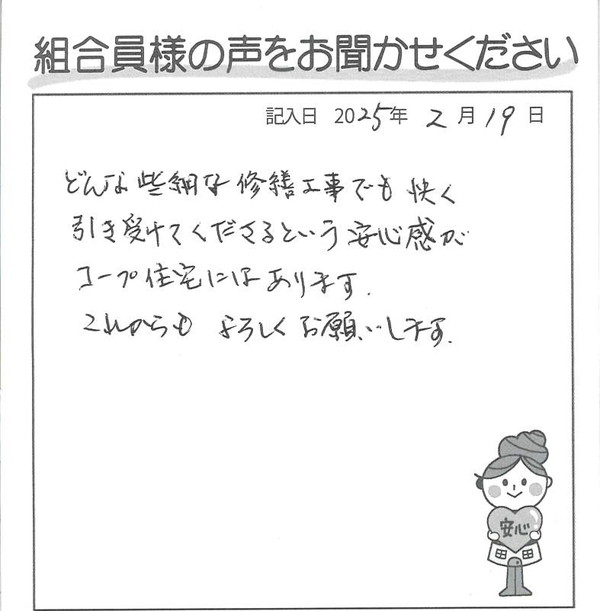 組合員様の声をお聞かせください
記入日 2025年 2月19日
どんな些細な修繕工事でも快く
引き受けてくださるという安心感が
コープ住宅にはあります.
これからもよろしくお願いします.
安心